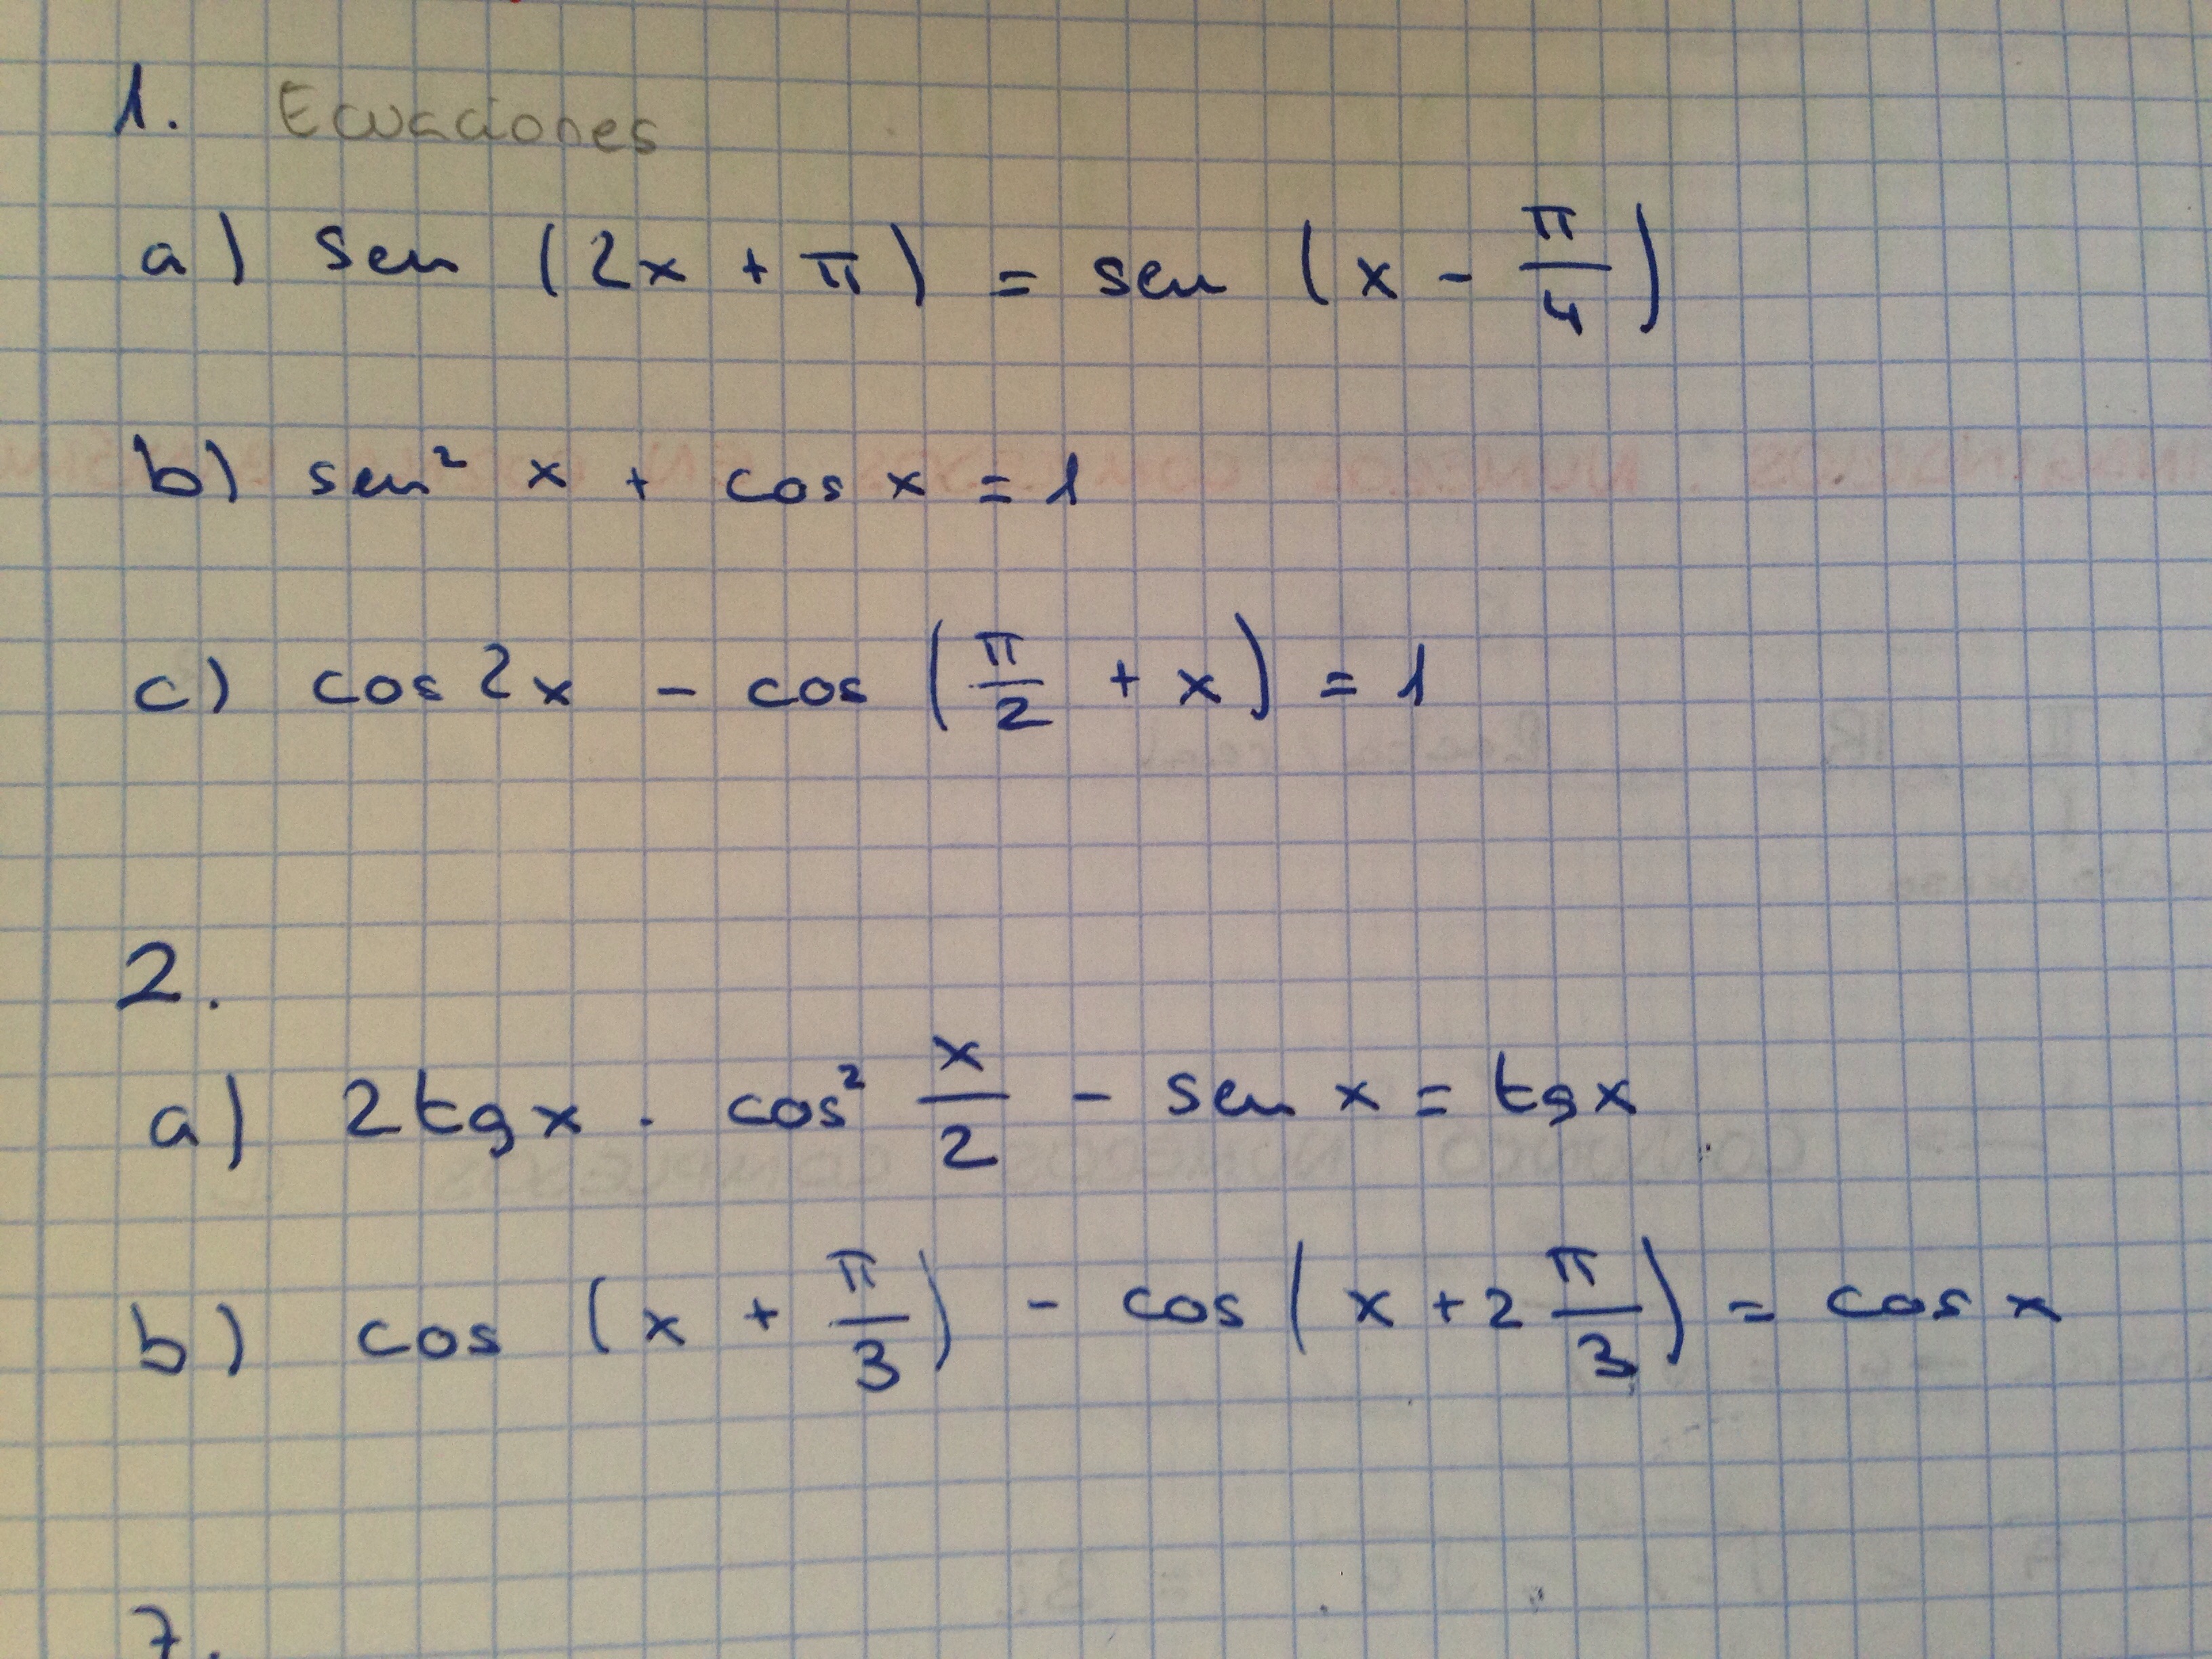 1. Ecuaciones
a) sen (2x + π) = sen (x - π/4)
b) sen² x + cos x = 1
c) cos 2x - cos (π/2 + x) = 1
2.
a) 2 tg x · cos² x/2 - sen x = tg x
b) cos (x + π/3) - cos (x + 2 π/3) = cos x
7.